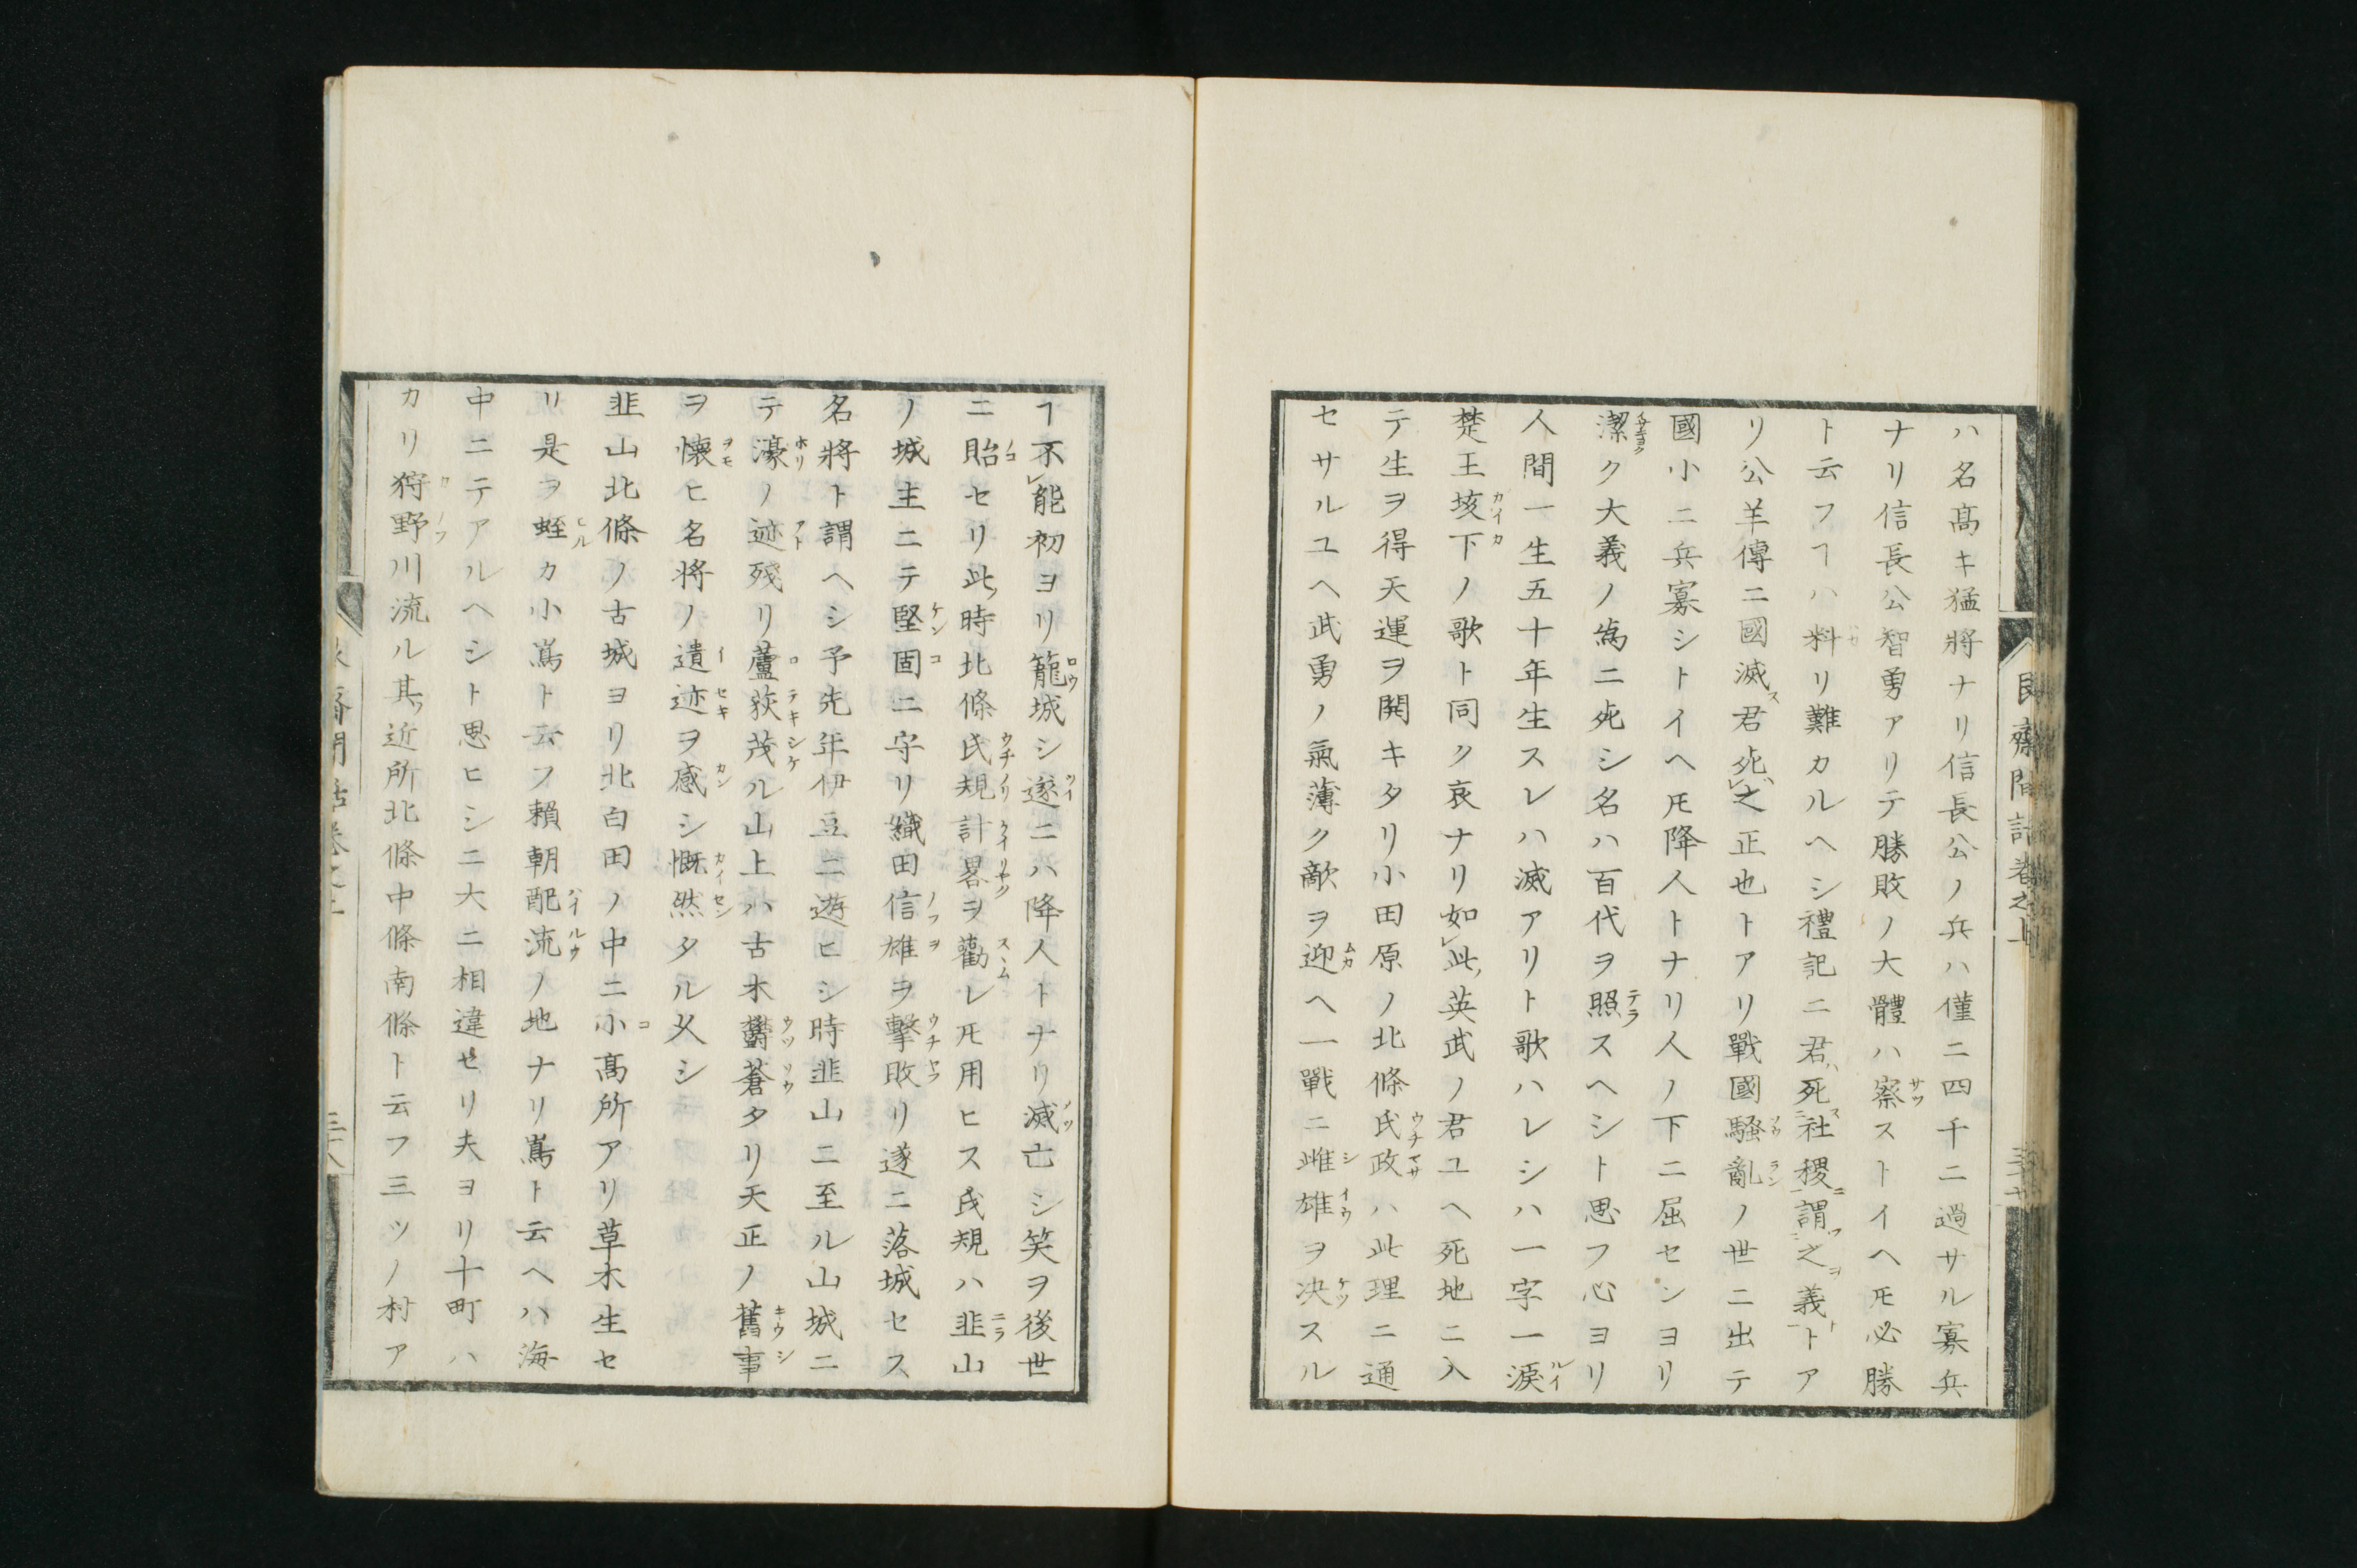 ハ名髙キ猛將ナリ信長公ノ兵ハ僅ニ四千ニ過サル寡兵
ナリ信長公智勇アリテ勝敗ノ大體ハ察ストイヘ𪜈必勝
ト云フヿハ料リ難カルヘシ禮記ニ君死社稷謂之義トア
リ公羊傳ニ國滅君死之正也トアリ戰國騷亂ノ世ニ出テ
國小ニ兵寡シトイヘ𪜈降人トナリ人ノ下ニ屈センヨリ
潔ク大義ノ為ニ死シ名ハ百代ヲ照スヘシト思フ心ヨリ
人間一生五十年生スレハ滅アリト歌ハレシハ一字一淚
楚王垓下ノ歌ト同ク哀ナリ如此英武ノ君ユヘ死地ニ入
テ生ヲ得天運ヲ開キタリ小田原ノ北條氏政ハ此理ニ通
セサルユヘ武勇ノ氣薄ク敵ヲ迎ヘ一戰ニ雌雄ヲ决スル
ヿ不能初ヨリ籠城シ遂ニハ降人トナリ滅亡シ笑ヲ後世
ニ貽セリ此時北條氏規計畧ヲ勸レ𪜈用ヒス氏規ハ韮山
ノ城主ニテ堅固ニ守リ織田信雄ヲ擊敗リ遂ニ落城セス
名將ト謂ヘシ予先年伊豆ニ遊ヒシ時韮山ニ至ル山城ニ
テ濠ノ迹殘リ蘆荻茂ル山上ハ古木鬱蒼タリ天正ノ舊事
ヲ懷ヒ名将ノ遺迹ヲ感シ慨然タル久シ
韮山北條ノ古城ヨリ北白田ノ中ニ小髙所アリ草木生セ
リ是ヲ蛭カ小嶌ト云フ賴朝配流ノ地ナリ嶌ト云ヘハ海
中ニテアルヘシト思ヒシニ大ニ相違セリ夫ヨリ十町ハ
カリ狩野川流ル其近所北條中條南條ト云フ三ツノ村ア